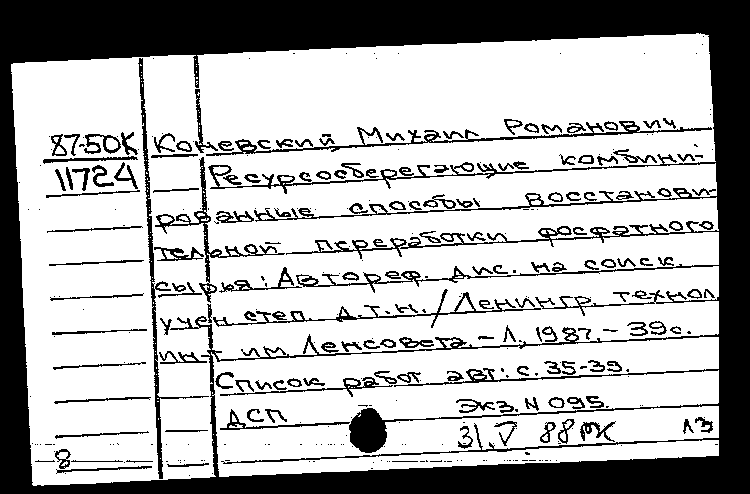 87-50К Коневский, Михаил Романович.
11724 Ресурсосберегающие комбини-
рованные способы восстанови-
тельной переработки фосфатного
сырья: Автореф. дис. на соиск.
учен степ. д.т.н./Ленингр. технол.
ин-т им. Ленсовета. - Л., 1987. - 39с.
Список работ авт: с. 35-39.
ДСП Экз. N 095.
31.V.88
8